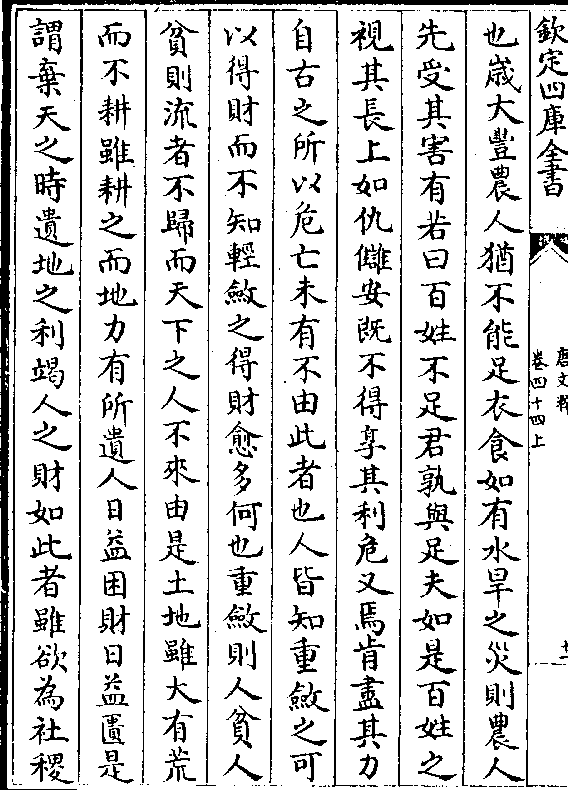 欽定四庫全書
唐文粹
卷四十四上
十二
也歲大豐農人猶不能足衣食如有水旱之災則農人
先受其害有若曰百姓不足君孰與足夫如是百姓之
視其長上如仇讎安既不得享其利危又焉肯盡其力
自古之所以危亡未有不由此者也人皆知重斂之可
以得財而不知輕斂之得財愈多何也重斂則人貧人
貧則流者不歸而天下之人不來由是土地雖大有荒
而不耕雖耕之而地力有所遺人日益困財日益匱是
謂棄天之時遺地之利竭人之財如此者雖欲為社稷